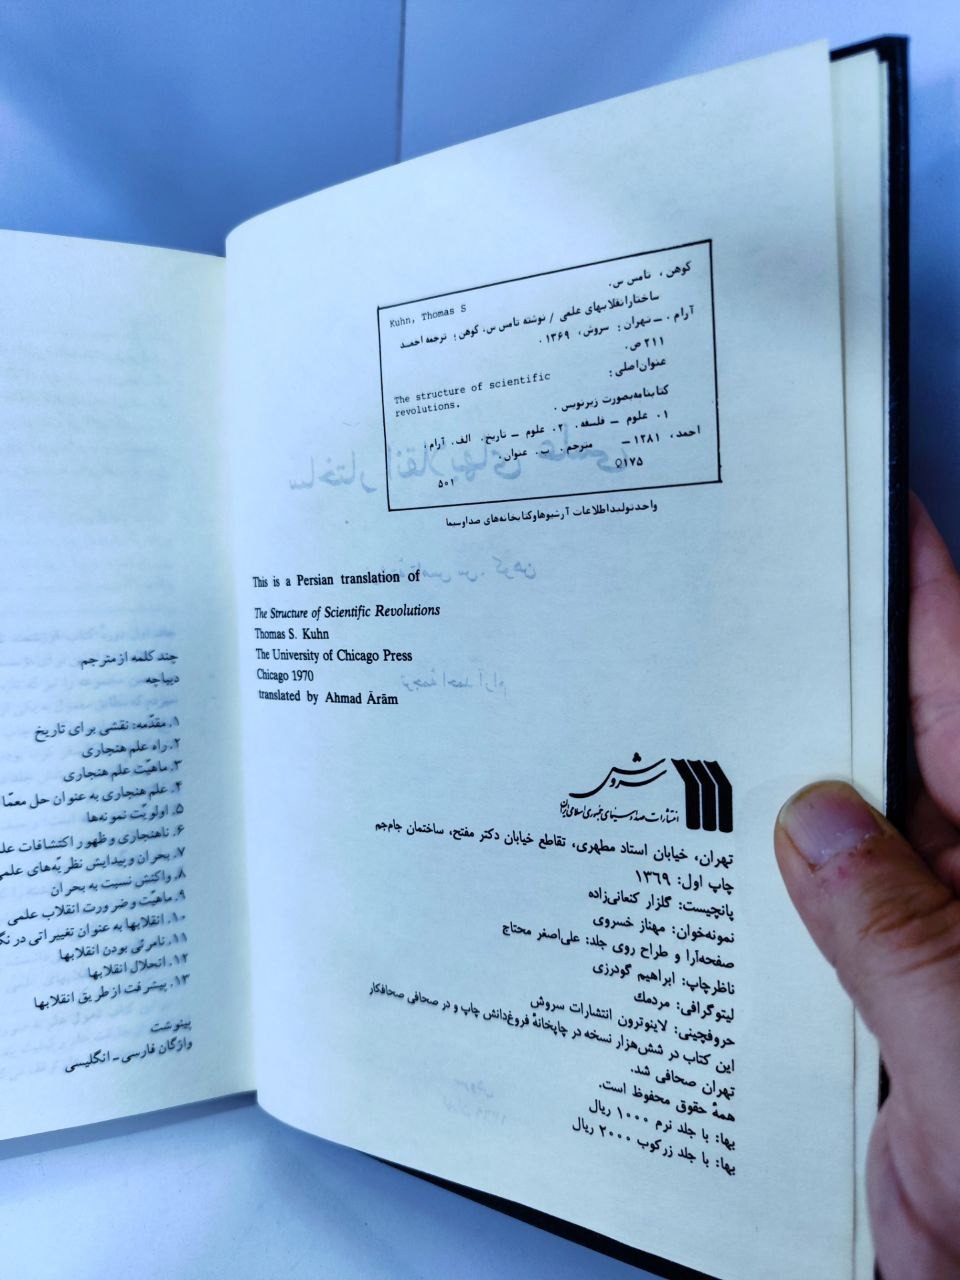 کوهن، تامس س.
Kuhn, Thomas S
ساختار انقلابهای علمی / نوشته تامس س. کوهن؛ ترجمه احمد
آرام. ـ تهران: سروش، ۱۳۶۹.
۲۱۱ ص.
عنوان اصلی:
The structure of scientific
revolutions.
کتابنامه بصورت زیرنویس.
۱. علوم ـ فلسفه. ۲. علوم ـ تاریخ. الف. آرام،
احمد، ۱۲۸۱ ـ مترجم. ب. عنوان.
۵۰۱ Q۱۷۵
واحد تولید اطلاعات آرشیوها و کتابخانه‌های صدا و سیما
This is a Persian translation of
The Structure of Scientific Revolutions
Thomas S. Kuhn
The University of Chicago Press
Chicago 1970
translated by Ahmad Ārām
سروش
انتشارات صدا و سیمای جمهوری اسلامی ایران
تهران، خیابان استاد مطهری، تقاطع خیابان دکتر مفتح، ساختمان جام‌جم
چاپ اول: ۱۳۶۹
پانچیست: گلزار کنعانی‌زاده
نمونه‌خوان: مهناز خسروی
صفحه‌آرا و طراح روی جلد: علی‌اصغر محتاج
ناظر چاپ: ابراهیم گودرزی
لیتوگرافی: مردمك
حروفچینی: لاینوترون انتشارات سروش
این کتاب در شش‌هزار نسخه در چاپخانهٔ فروغ‌دانش چاپ و در صحافی صحافکار
تهران صحافی شد.
همهٔ حقوق محفوظ است.
بها: با جلد نرم ۱۰۰۰ ریال
بها: با جلد زرکوب ۲۰۰۰ ریال
چند کلمه از مترجم
دیباچه
۱. مقدّمه: نقشی برای تاریخ
۲. راه علم هنجاری
۳. ماهیّت علم هنجاری
۴. علم هنجاری به عنوان حل معمّا
۵. اولویّت نمونه‌ها
۶. ناهنجاری و ظهور اکتشافات
۷. بحران و پیدایش نظریّه‌های
۸. واکنش نسبت به بحران
۹. ماهیّت و ضرورت انقلاب علمی
۱۰. انقلابها به عنوان تغییراتی در
۱۱. نامرئی بودن انقلابها
۱۲. انحلال انقلابها
۱۳. پیشرفت از طریق انقلابها
پینوشت
واژگان فارسی ـ انگلیسی